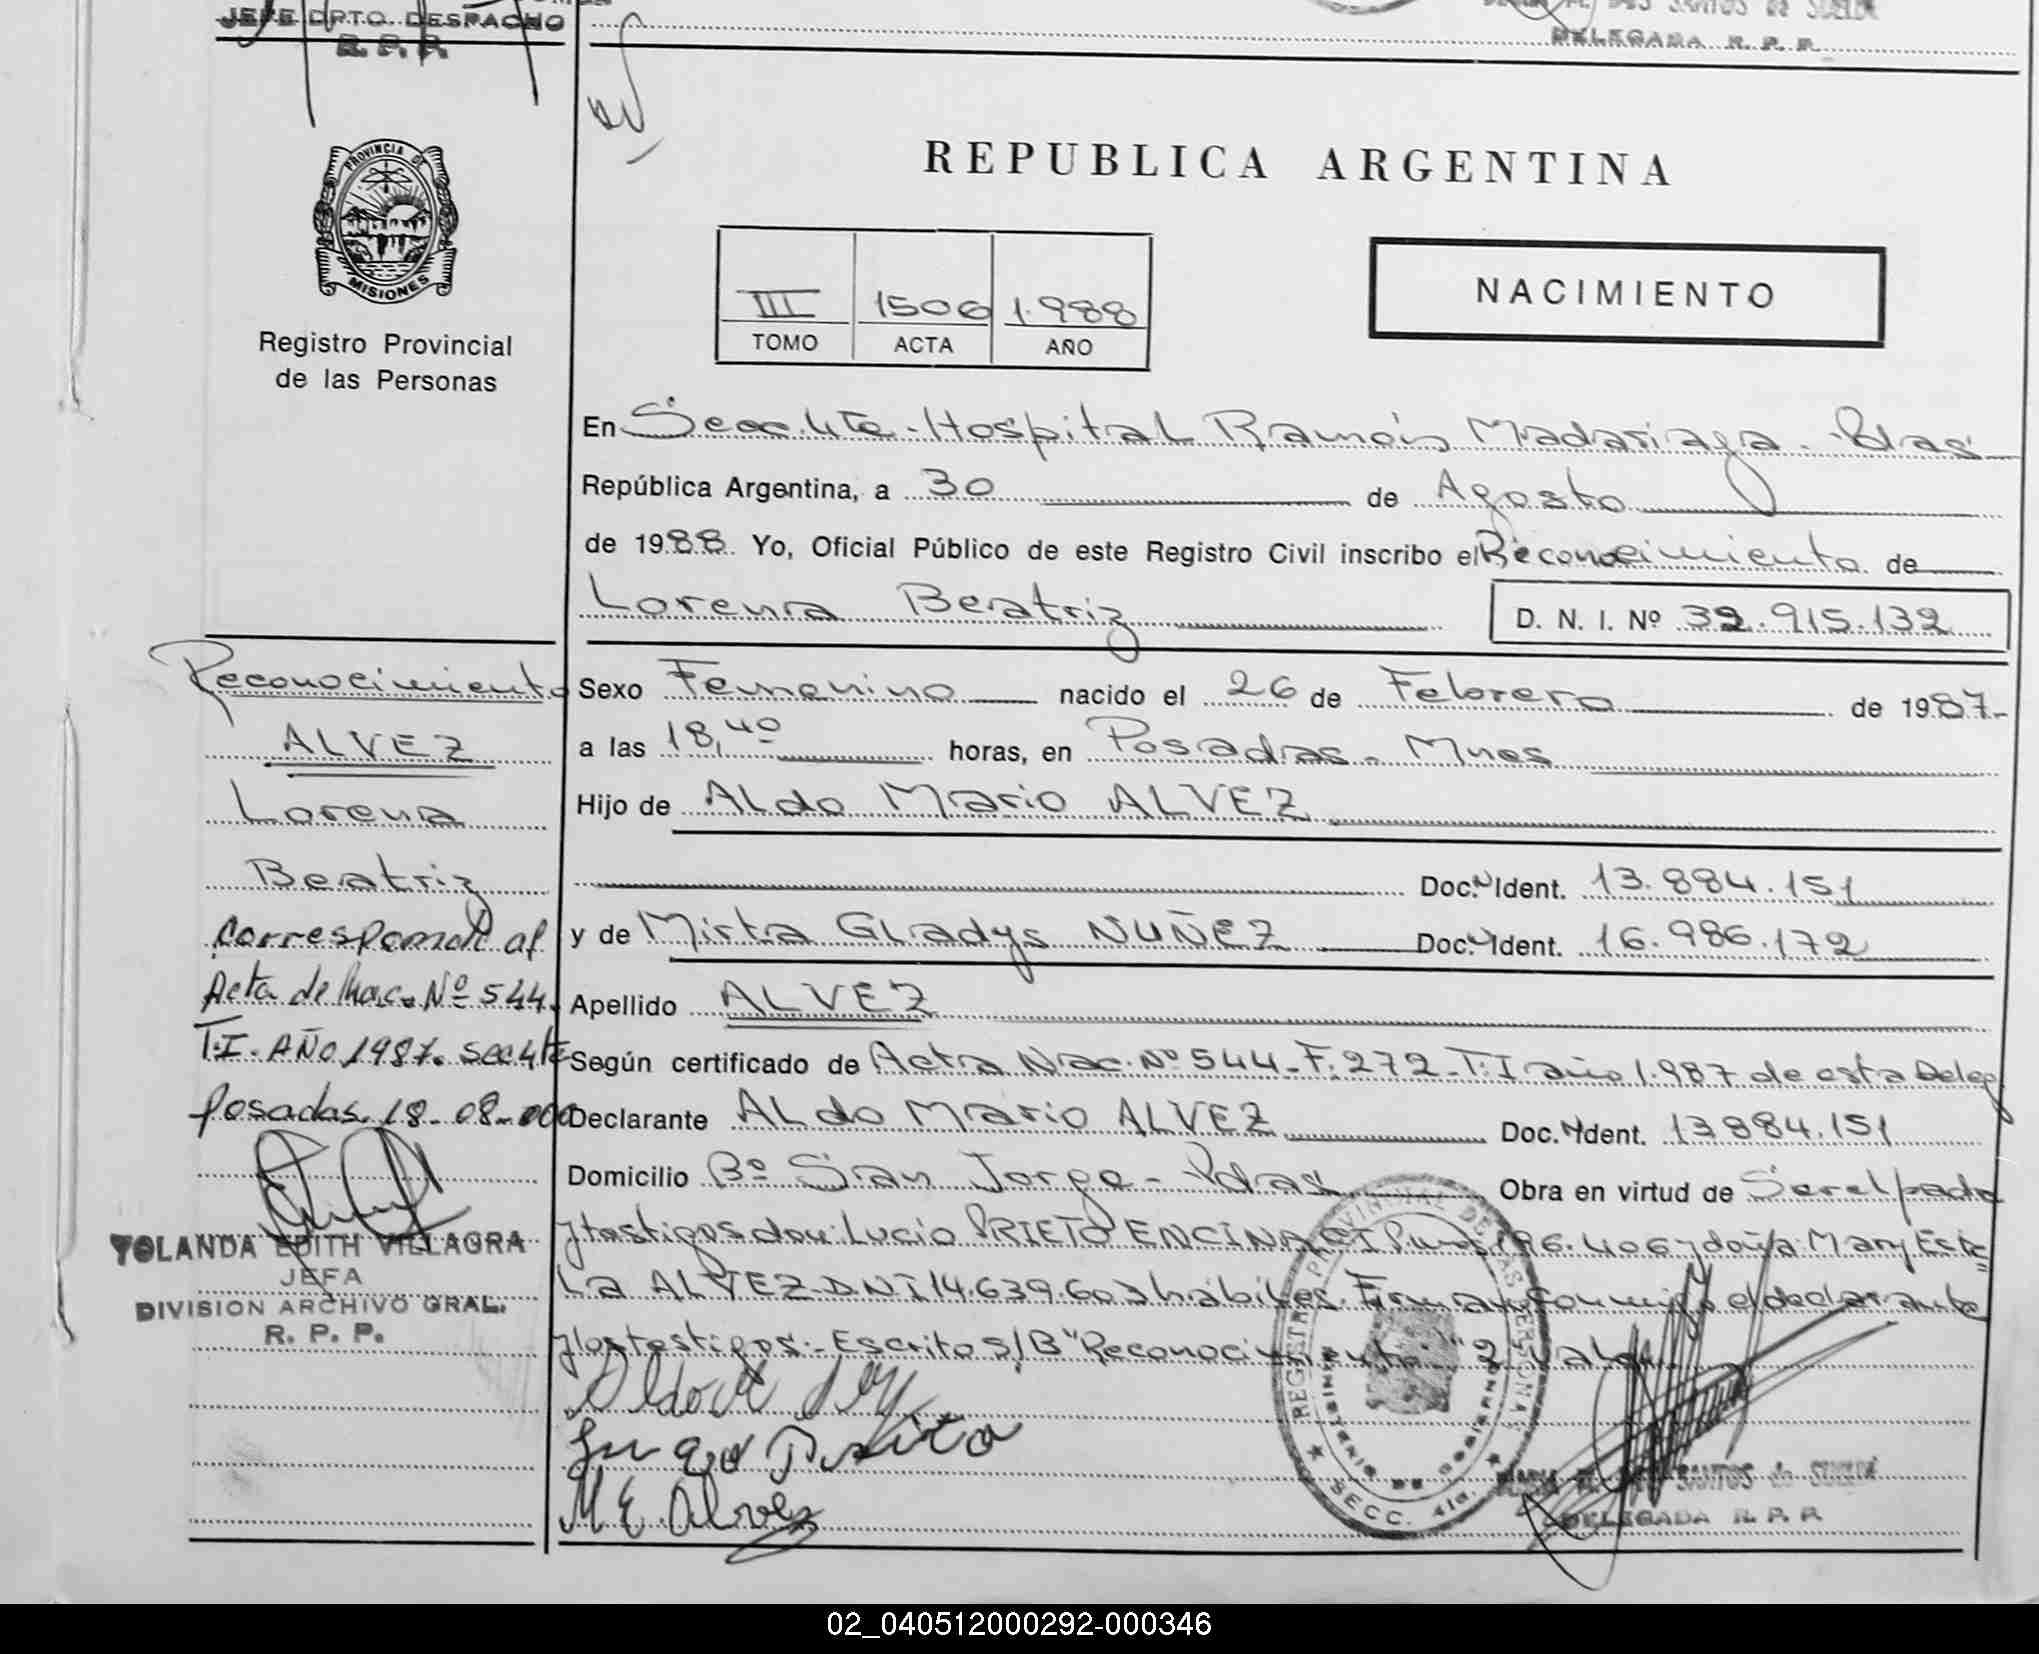 JEFE DPTO. DESPACHO
R. P. P.
DELEGADA R. P. P.
PROVINCIA DE
MISIONES
Registro Provincial
de las Personas
REPUBLICA ARGENTINA
III 1506 1.988
TOMO ACTA AÑO
NACIMIENTO
En Secc. 4ta - Hospital Ramón Madariaga - Pdas
República Argentina, a 30 de Agosto
de 1988. Yo, Oficial Público de este Registro Civil inscribo el Reconocimiento de
Lorena Beatriz D. N. I. Nº 32.915.132
Sexo Femenino nacido el 26 de Febrero de 1987.-
a las 18,40 horas, en Posadas - Mnes
Hijo de Aldo Mario ALVEZ
Doc. N Ident. 13.884.151
y de Mirta Gladys NUÑEZ Doc. N Ident. 16.986.172
Apellido ALVEZ
Según certificado de Acta Nac. Nº 544 - F: 272 - T: I año 1.987 de esta Deleg
Declarante ALdo Mario ALVEZ Doc. N Ident. 13884.151
Domicilio Bº San Jorge - Pdas Obra en virtud de Ser el padre
y testigos don: Lucio PRIETO ENCINA CI 196.406 y doña: Mary Este
La ALVEZ DNI 14.639.603 hábiles. Firman conmigo el declarante
y los testigos:- Escrito S/B "Reconocimiento" "2" Vale.
M E. Alvez
Reconocimiento
ALVEZ
Lorena
Beatriz
Corresponde al
Acta de Nac. Nº 544.
T. I. AÑO 1987. Secc 4ta
Posadas. 18-08-000
YOLANDA EDITH VILLAGRA
JEFA
DIVISION ARCHIVO GRAL.
R. P. P.
REGISTRO PROVINCIAL DE LAS PERSONAS
MINISTERIO DE GOBIERNO
SECC. 4ta.
SANTOS de
DELEGADA R. P. P.
02_040512000292-000346